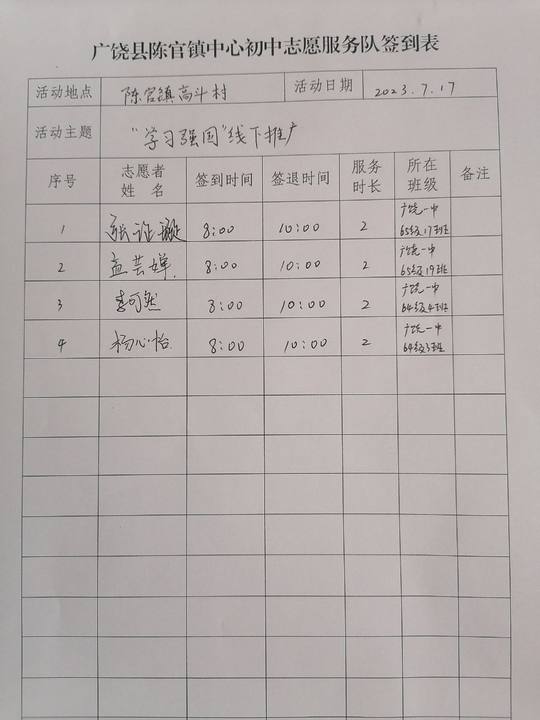 广饶县陈官镇中心初中志愿服务队签到表
活动地点 陈官镇高斗村 活动日期 2023.7.17
活动主题 “学习强国”线下推广
序号 志愿者姓名 签到时间 签退时间 服务时长 所在班级 备注
1 张 8:00 10:00 2 广饶一中 65级17班
2 孟芸婵 8:00 10:00 2 广饶一中 65级19班
3 李可然 8:00 10:00 2 广饶一中 64级4班
4 杨心怡 8:00 10:00 2 广饶一中 64级3班